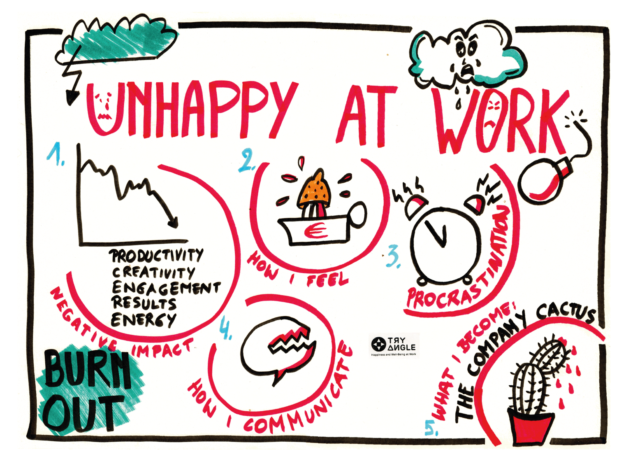 UNHAPPY AT WORK
1.
PRODUCTIVITY
CREATIVITY
ENGAGEMENT
RESULTS
ENERGY
NEGATIVE IMPACT
2.
HOW I FEEL
3.
PROCRASTINATION
4.
HOW I COMMUNICATE
TRY
ANGLE
Happiness and Well-Being at Work
5. WHAT I BECOME:
THE COMPANY CACTUS
BURN
OUT